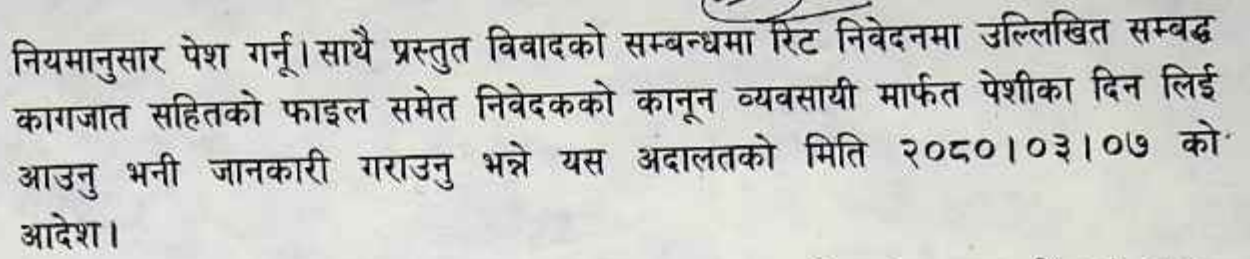 नियमानुसार पेश गर्नू। साथै प्रस्तुत विवादको सम्बन्धमा रिट निवेदनमा उल्लिखित सम्बद्ध
कागजात सहितको फाइल समेत निवेदकको कानून व्यवसायी मार्फत पेशीका दिन लिई
आउनु भनी जानकारी गराउनु भन्ने यस अदालतको मिति २०८०।०३।०७ को
आदेश।